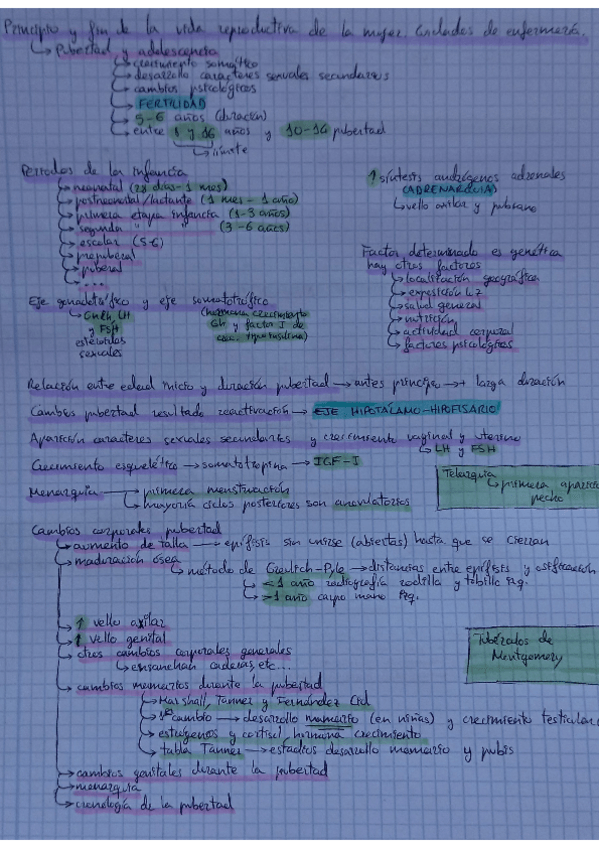 Principio y fin de la vida reproductiva de la mujer. Cuidados de enfermería.
Pubertad y adolescencia
crecimiento somático
desarrollo caracteres sexuales secundarios
cambios psicológicos
FERTILIDAD
5-6 años (duración)
entre 8 y 16 años y 10-14 pubertad
límite
Periodos de la infancia
neonatal (28 días - 1 mes)
postneonatal/lactante (1 mes - 1 año)
primera etapa infancia (1-3 años)
segunda " " (3-6 años)
escolar (5-6)
prepuberal
puberal
...
↑ síntesis andrógenos adrenales
(ADRENARQUIA)
vello axilar y pubiano
Factor determinado es genética
hay otros factores
localización geográfica
exposición luz
salud general
nutrición
actividad corporal
factores psicológicos
Eje gonadotrófico y eje somatotrófico
GnRh LH
y FSH
esteroides
sexuales
(hormona crecimiento
Gh y factor I de
crec. tipo insulina)
Relación entre edad inicio y duración pubertad → antes principio → + larga duración
Cambios pubertad resultado reactivación → EJE HIPOTÁLAMO-HIPOFISARIO
Aparición caracteres sexuales secundarios y crecimiento vaginal y uterino
LH y FSH
Crecimiento esquelético → somatotropina → IGF-I
Menarquia → primera menstruación
mayoría ciclos posteriores son anovulatorios
Telarquia
primera aparición
pecho
Cambios corporales pubertad
aumento de talla → epífisis sin unirse (abiertas) hasta que se cierran
maduración ósea
método de Greulich-Pyle → distancias entre epífisis y osificación
< 1 año radiografía rodilla y tobillo izq.
> 1 año carpo mano izq.
↑ vello axilar
↑ vello genital
otros cambios corporales generales
ensanchan caderas, etc...
Tubérculos de
Montgomery
cambios mamarios durante la pubertad
Marshall, Tanner y Fernández Cid
1er cambio → desarrollo mamario (en niñas) y crecimiento testicular
estrógenos y cortisol, hormona crecimiento
tabla Tanner → estadios desarrollo mamario y pubis
cambios genitales durante la pubertad
menarquia
cronología de la pubertad